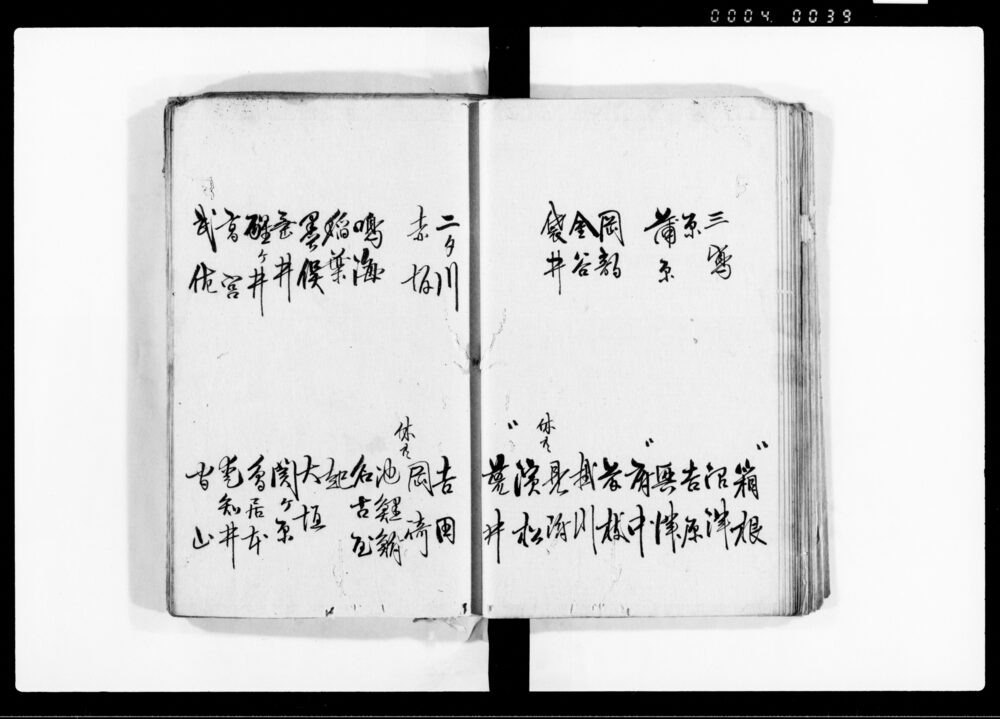 0004 0039
三嶋
原
蒲原
岡部
金谷
袋井
〃
箱根
沼津
吉原
興津
〃
府中
藤枝
掛川
見附
濱松
〃
荒井
二タ川
赤坂
鳴海
稲葉
墨俣
垂井
醒ヶ井
高宮
武佐
吉田
岡崎
池鯉鮒
名古屋
起
大垣
関ヶ原
鳥居本
愛知井
守山